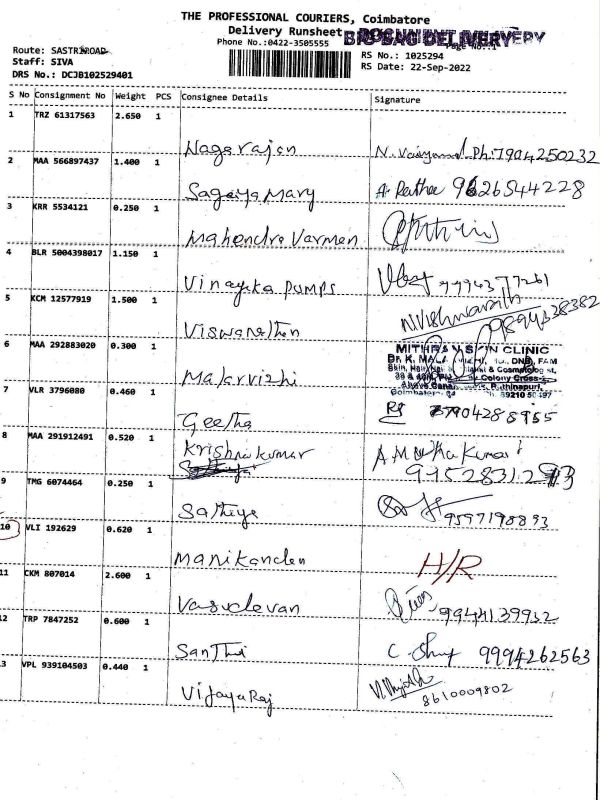 THE PROFESSIONAL COURIERS, Coimbatore
Delivery Runsheet DOCUMENT DELIVERY
BIG BAG DELIVERY
Phone No.:0422-3505555 Page No.:1
Route: SASTRIROAD
Staff: SIVA
DRS No.: DCJB102529401
RS No.: 1025294
RS Date: 22-Sep-2022
S No Consignment No Weight PCS Consignee Details Signature
1 TRZ 61317563 2.650 1
Nagarajan Ph:7904250232
2 MAA 566897437 1.400 1
Sagaya Mary 9626544228
3 KRR 5534121 0.250 1
Mahendra Varmen
4 BLR 5004398017 1.150 1
Vinayaka PUMPS 9994377261
5 KCM 12577919 1.500 1
Viswanathan N.Vishwanath 9894328382
6 MAA 292883020 0.300 1
Malarvizhi
MITHRAN SKIN CLINIC
Dr. K. DNB, FAM
Skin, & Cosmetologist,
Colony Cross
Above Rathinapuri,
Coimbatore- Ph. 89210 50497
7 VLR 3796080 0.460 1
Geetha 7904288955
8 MAA 291912491 0.520 1
Krishnakumar
9 TMG 6074464 0.250 1
Sathiya 9597198893
10 VLI 192629 0.620 1
Manikanden H/R
11 CKM 807014 2.600 1
Vasudevan 9944139932
12 TRP 7847252 0.600 1
Santhi 9994262563
3 VPL 939104503 0.440 1
Vijayaraj 8610009802